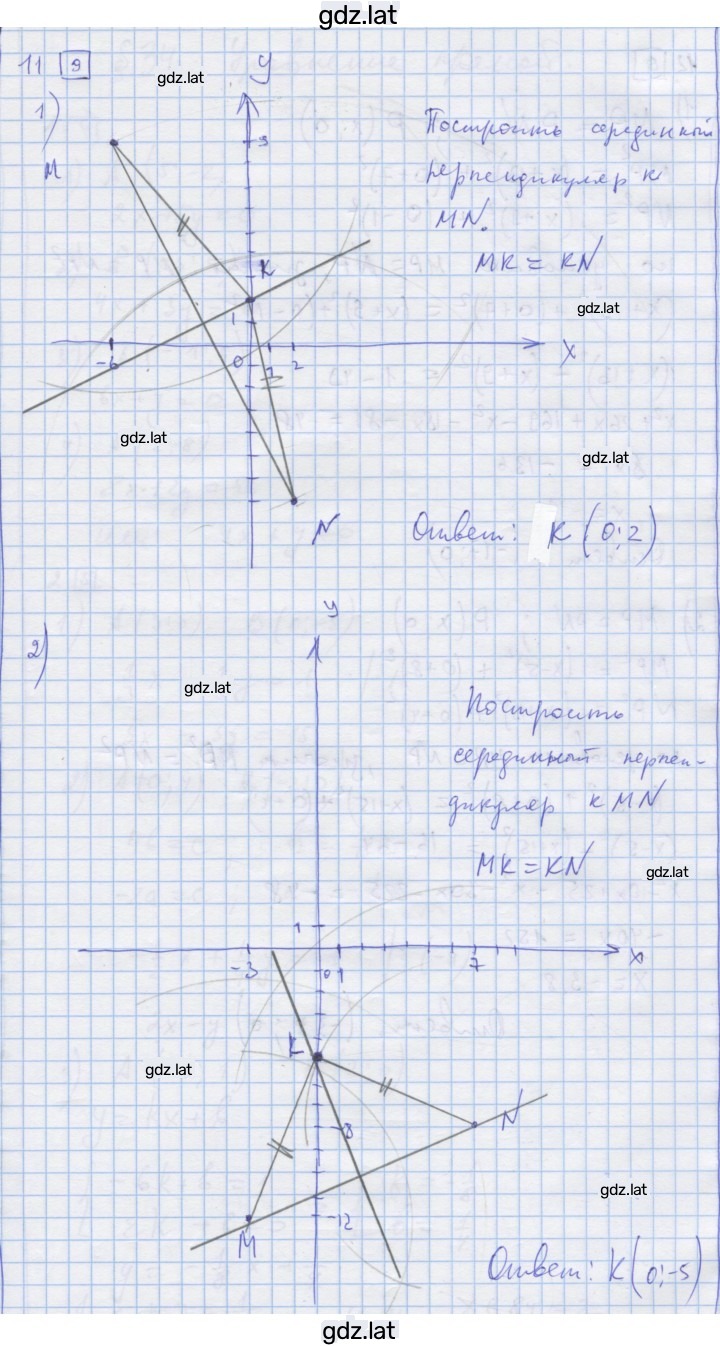 gdz.lat
11 9
gdz.lat
y
1)
M
9
Построить серединный
перпендикуляр к
MN.
MK = KN
K
gdz.lat
1
-6
0
1
2
x
gdz.lat
gdz.lat
N
Ответ: K (0; 2)
y
2)
gdz.lat
Построить
серединный перпен-
дикуляр к MN
MK = KN
gdz.lat
1
-3
0
1
7
x
K
gdz.lat
-8
N
gdz.lat
-12
M
Ответ: K (0; -5)
gdz.lat